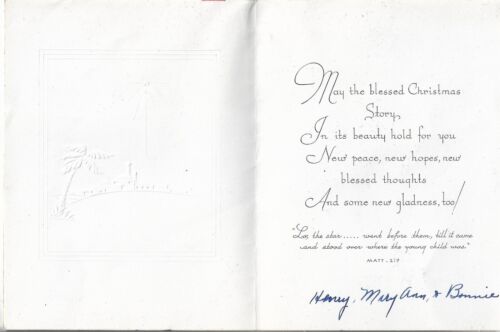 May the blessed Christmas
Story,
In its beauty hold for you
New peace, new hopes, new
blessed thoughts
And some new gladness, too!
"Lo, the star..... went before them, till it came
and stood over where the young child was."
MATT. 2:9
Henry, Mary Ann, & Bonnie